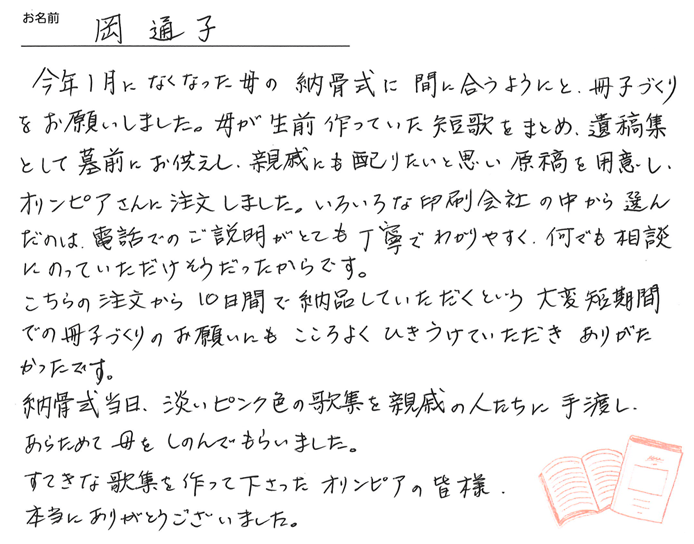 お名前 岡 通子
今年1月に なくなった母の 納骨式に 間に合うようにと、冊子づくり
を お願いしました。母が 生前 作っていた 短歌を まとめ、遺稿集
として 墓前に お供えし、親戚にも 配りたいと思い 原稿を 用意し、
オリンピアさんに 注文しました。いろいろな 印刷会社 の中から 選ん
だのは、電話でのご説明がとても 丁寧で わかりやすく、何でも 相談
にのっていただけそうだったからです。
こちらの 注文から 10日間で 納品していただくという 大変 短期間
での冊子づくりの お願いにも こころよく ひきうけていただき ありがた
かったです。
納骨式当日、淡いピンク色の歌集を 親戚の人たちに 手渡し、
あらためて 母を しのんでもらいました。
すてきな 歌集を作って下さった オリンピアの 皆様、
本当に ありがとうございました。